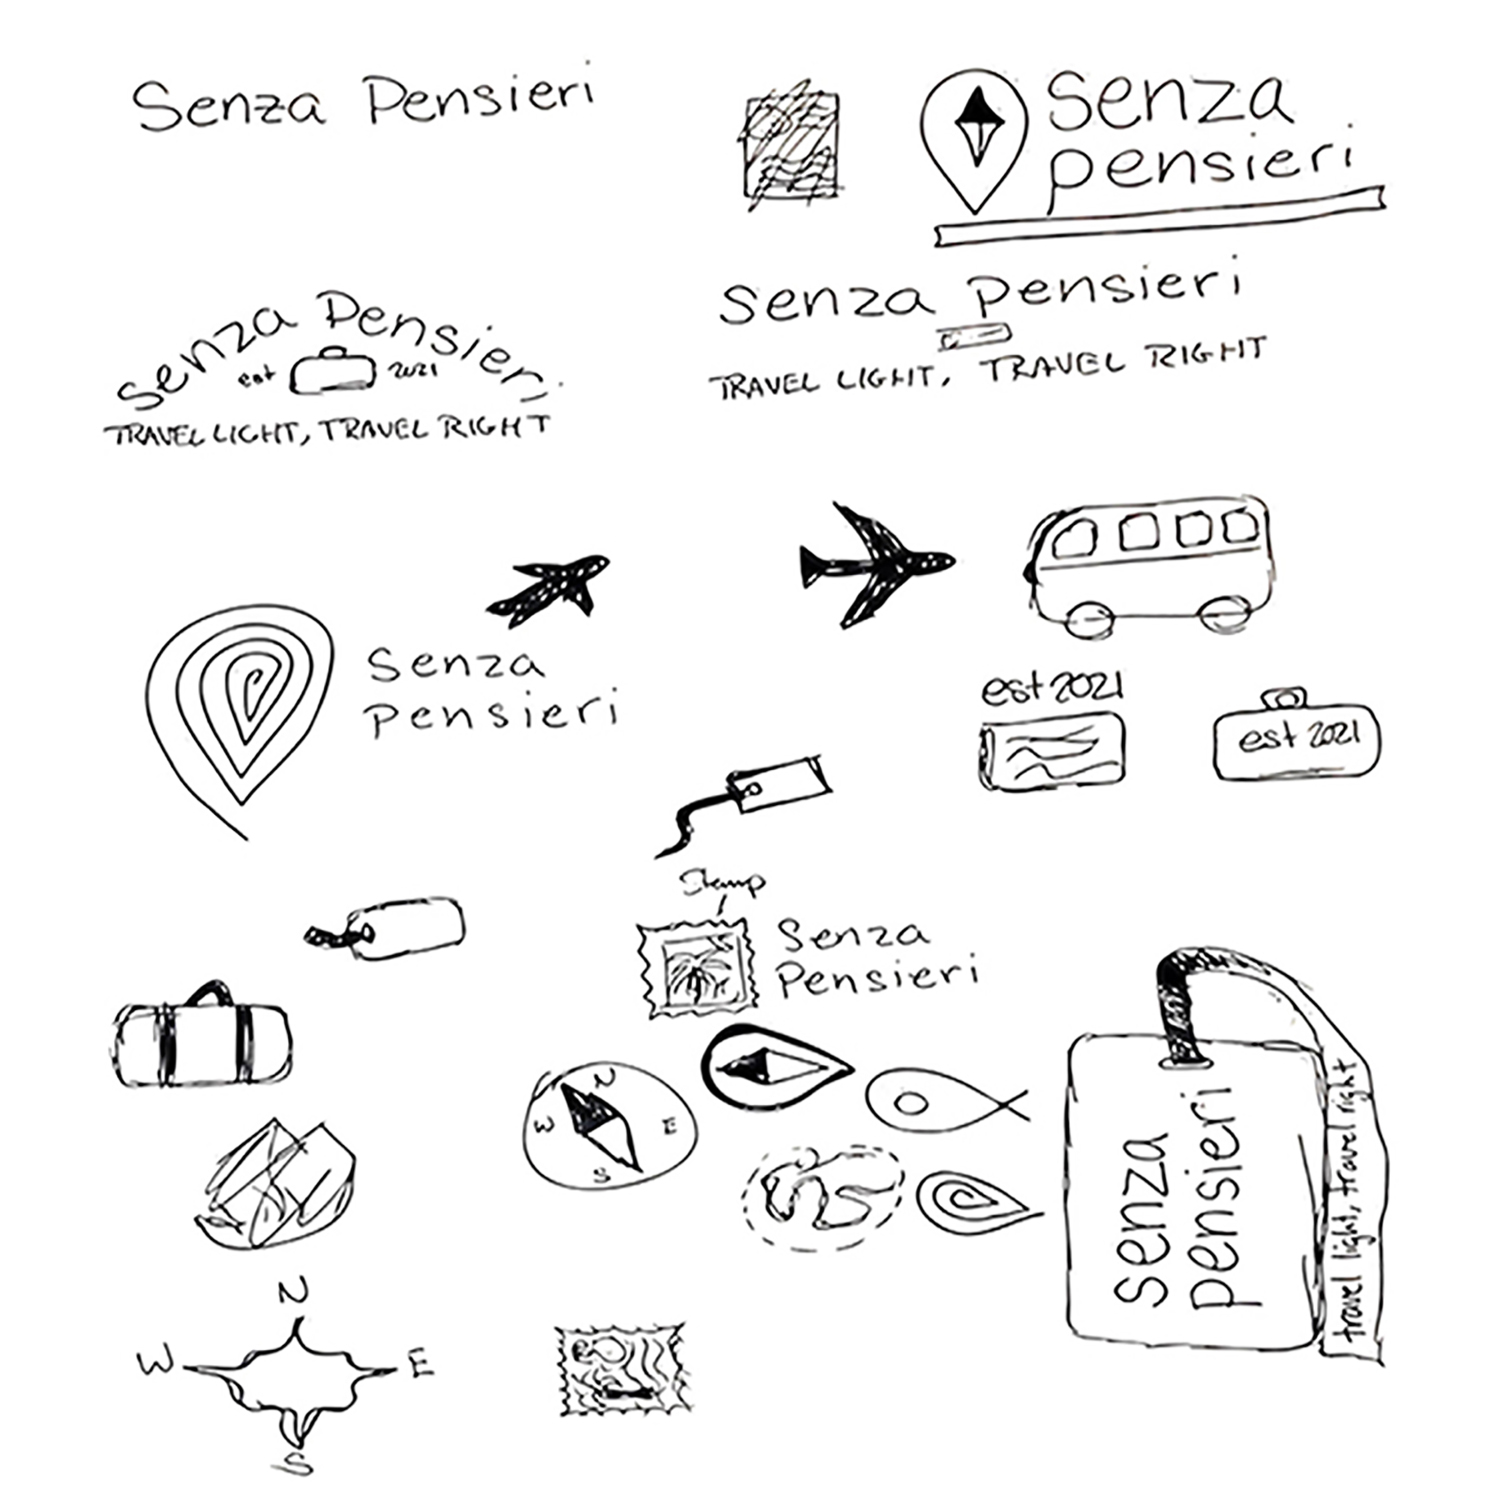 Senza Pensieri
Senza
pensieri
Senza Pensieri
est 2021
TRAVEL LIGHT, TRAVEL RIGHT
Senza pensieri
TRAVEL LIGHT, TRAVEL RIGHT
Senza
pensieri
est 2021
est 2021
Stamp
Senza
Pensieri
N
W
E
S
senza
pensieri
travel light, travel right
N
W
E
S